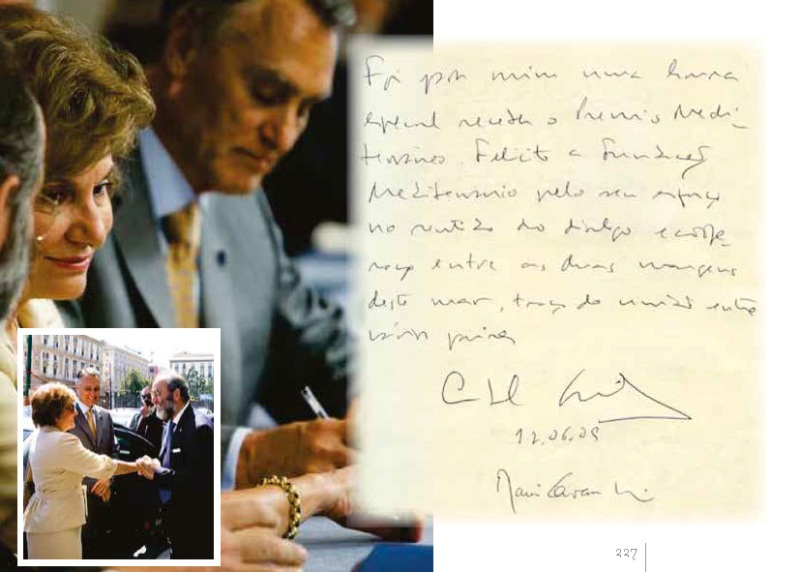 Foi para mim uma honra
especial receber o Premio Medi-
terraneo. Felicito a Fundação
Mediterraneo pelo seu esforço
no sentido do dialogo e coope
ração entre as duas margens
deste mar, traço de união entre
vários paises
12.06.09
227